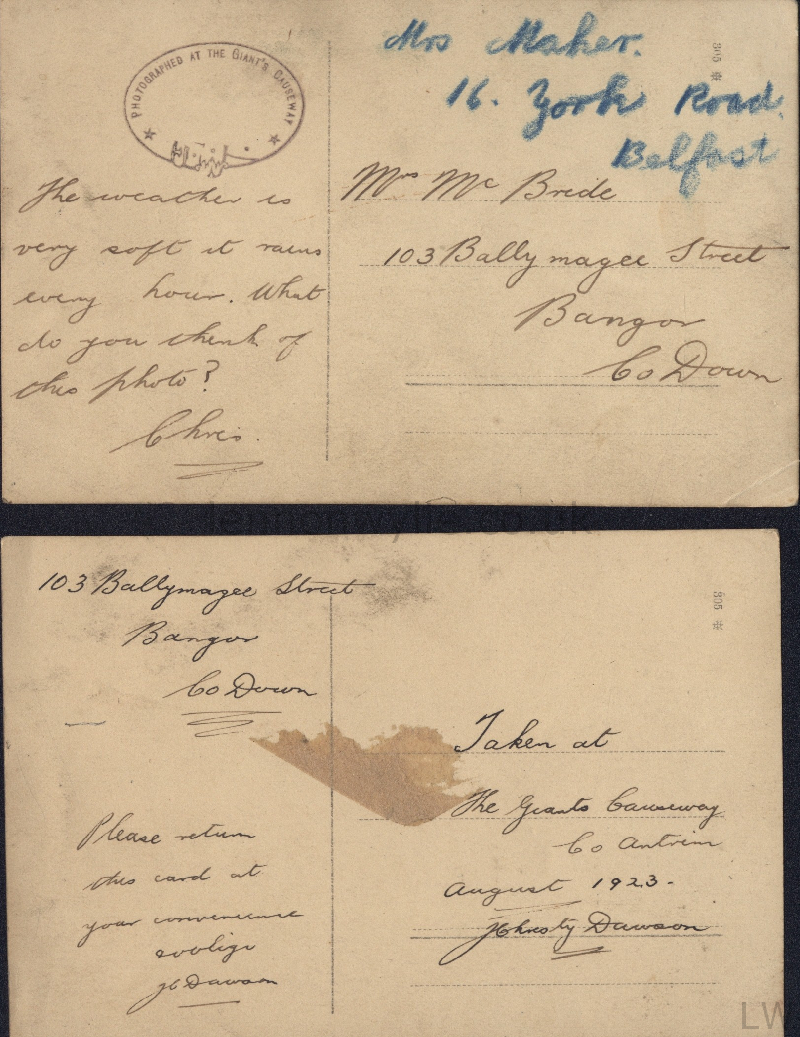 PHOTOGRAPHED AT THE GIANT'S CAUSEWAY
Mrs Maher.
16. York Road.
Belfast
305
The weather is
very soft it rains
every hour. What
do you think of
this photo?
Chris.
Mrs Mc Bride
103 Ballymagee Street
Bangor
Co Down
103 Ballymagee Street
Bangor
Co Down
Please return
this card at
your convenience
& oblige
JC Dawson
305
Taken at
The Giants Causeway
Co Antrim
August 1923-
JChristy Dawson
LW